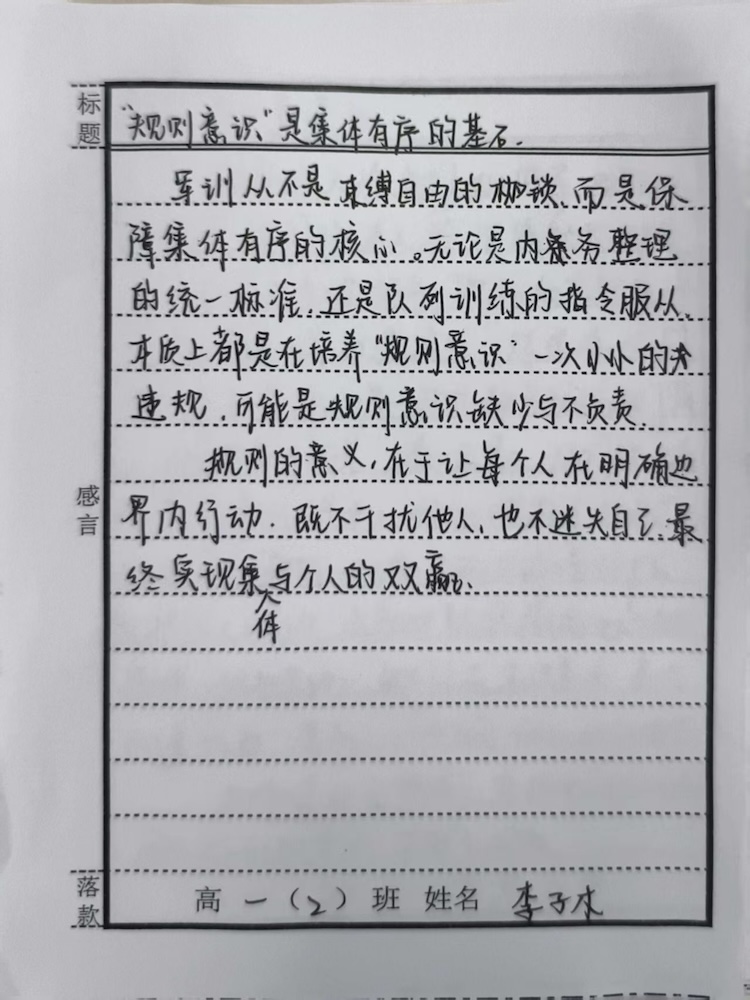 标题
"规则意识"是集体有序的基石.
军训从不是束缚自由的枷锁,而是保
障集体有序的核心。无论是内务整理
的统一标准,还是队列训练的指令服从,
本质上都是在培养"规则意识"一次小小的
违规,可能是规则意识缺少与不负责
感言
规则的意义,在于让每个人在明确边
界内行动.既不干扰他人,也不迷失自己,最
终实现集体与个人的双赢.
落款
高一(2)班 姓名 李子木